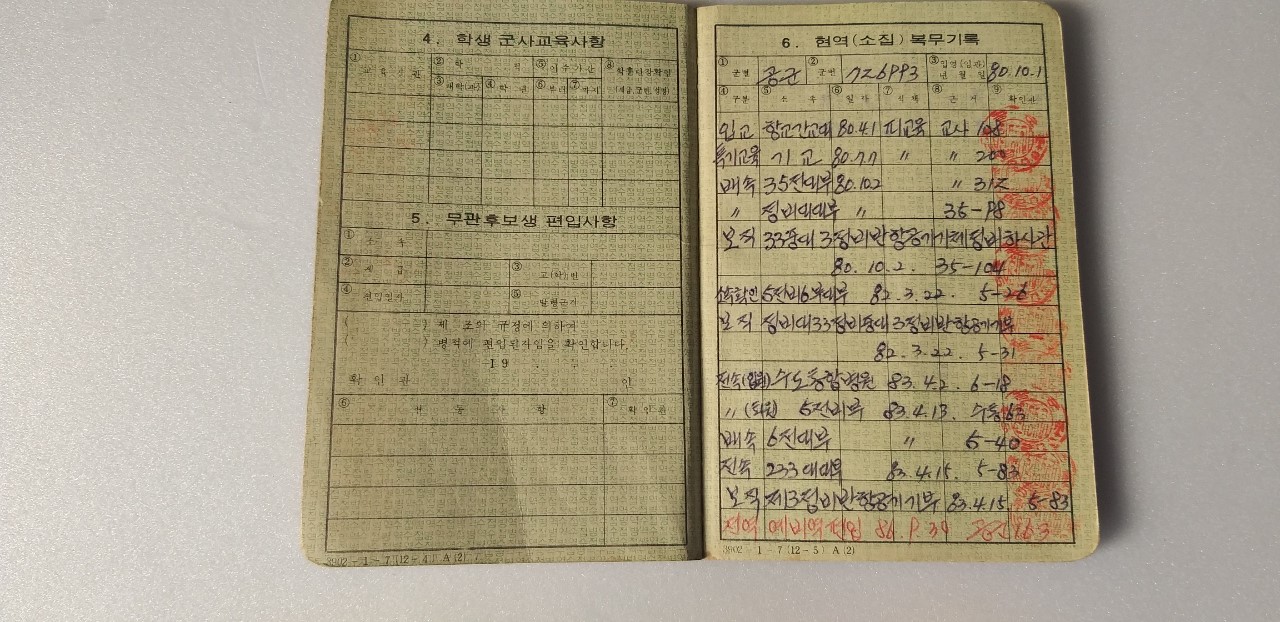 4. 학생 군사교육사항
① 교육기관 ② 학 적 ⑤ 이수기간 ⑧ 학훈단장확인
③ 대학(과) ④ 학년 ⑥ 부터 ⑦ 까지 (계급, 군번, 성명)
5. 무관후보생 편입사항
① 소 속
② 계 급 ③ 교(학)번
④ 편입일자 ⑤ 발령근거
( ) 제 조의 규정에 의하여
( ) 병적에 편입된자임을 확인합니다.
19 . . .
확인관 인
⑥ 변 동 사 항 ⑦ 확인관
3902-1-7(12-4)A(2)
6. 현역(소집) 복무기록
① 군별 공군 ② 군번 ③ 입영(임관) 년 월 일 80.10.1
④ 구분 ⑤ 소 속 ⑥ 일자 ⑦ 직책 ⑧ 근 거 ⑨ 확인관
입교 항교간교대 80.4.1 피교육 교사 108
특기교육 기교 80.7.7 〃 〃 200
배속 35전대부 80.10.2 〃 312
〃 정비대대부 〃 35-98
보직 33중대 3정비반 항공기기체정비하사관
80.10.2. 35-104
5전비 82.3.22. 5-26
보직 정비대 33정비중대 3정비반 항공기기부
82.3.22. 5-31
전속(입원) 수도통합병원 83.4.2. 6-18
〃 (퇴원) 5전비부 83.4.13. 수통63
배속 6전대부 〃 5-40
전속 233대대부 83.4.15. 5-83
보직 제3정비반 항공기기부 83.4.15. 5-83
전역 예비역편입 163
3902-1-7(12-5)A(2)